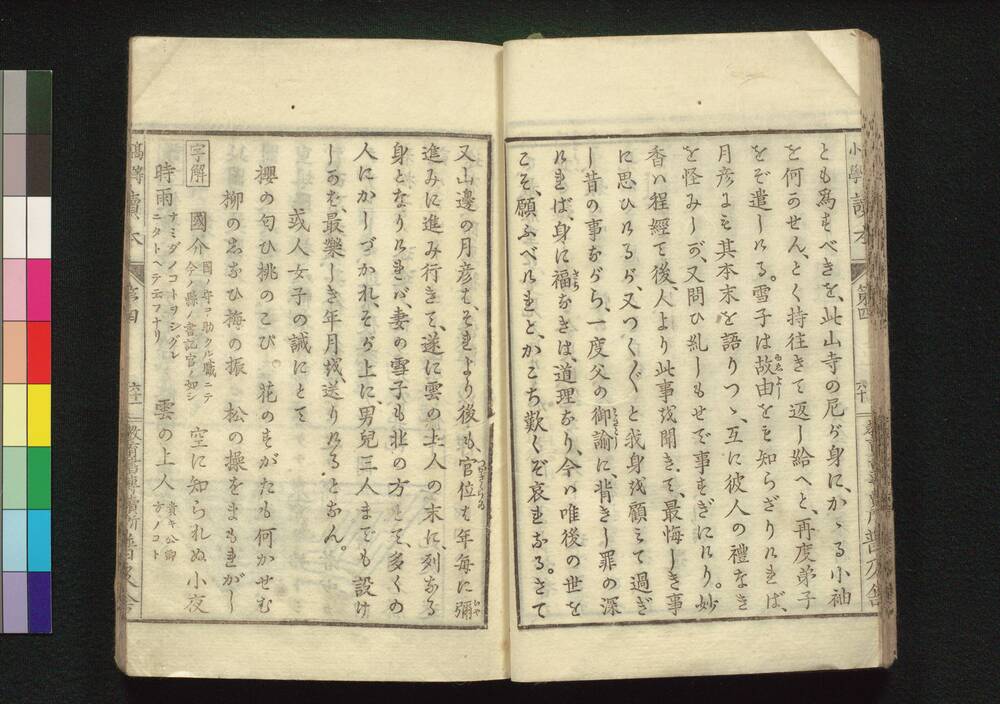 小學讀本 第四 六十 普及舎
とも爲もべきを、此山寺の尼が身に、かゝる小袖
を何かせん、とく持往きて返し給へと、再度弟子
をぞ遣しける。雪子は故由をも知らざりければ、
月彦にも其本末を語りつゝ、互に彼人の禮なき
を怪みしが、又問ひ糺しもせで事すぎにけり。妙
香ハ程經て後、人より此事を聞きて、最悔しき事
に思ひけるが、又つく〲と我身を顧みて過ぎ
し昔の事ながら、一度父の御諭に、背きし罪の深
ければ、身に福なきは、道理なり、今ハ唯後の世を
こそ、願ふべけれと、かこち歎くぞ哀れなる。さて
又山邊の月彦は、それより後も、官位も年毎に彌
進みに進み行きて、遂に雲の上人の末に、列なる
身となりければ、妻の雪子も北の方とて、多くの
人にかしづかれ、そが上に男兒三人までも設け
しかば、最樂しき年月を送りける、となん。
或人女子の誡にとて
櫻の匂ひ桃のこび。花のすがたも何かせむ
柳のしなひ梅の振 松の操をまもれかし
字解 國介 國ノ守コヲ助クル職ニテ今ノ縣ノ書記官ノ如シ 空に知られぬ小夜
時雨 ナミダノコトヲシグルニタトヘテ云フナリ 雲の上人 貴キ公卿方ノコト
讀本 第四 六十一 普及舎